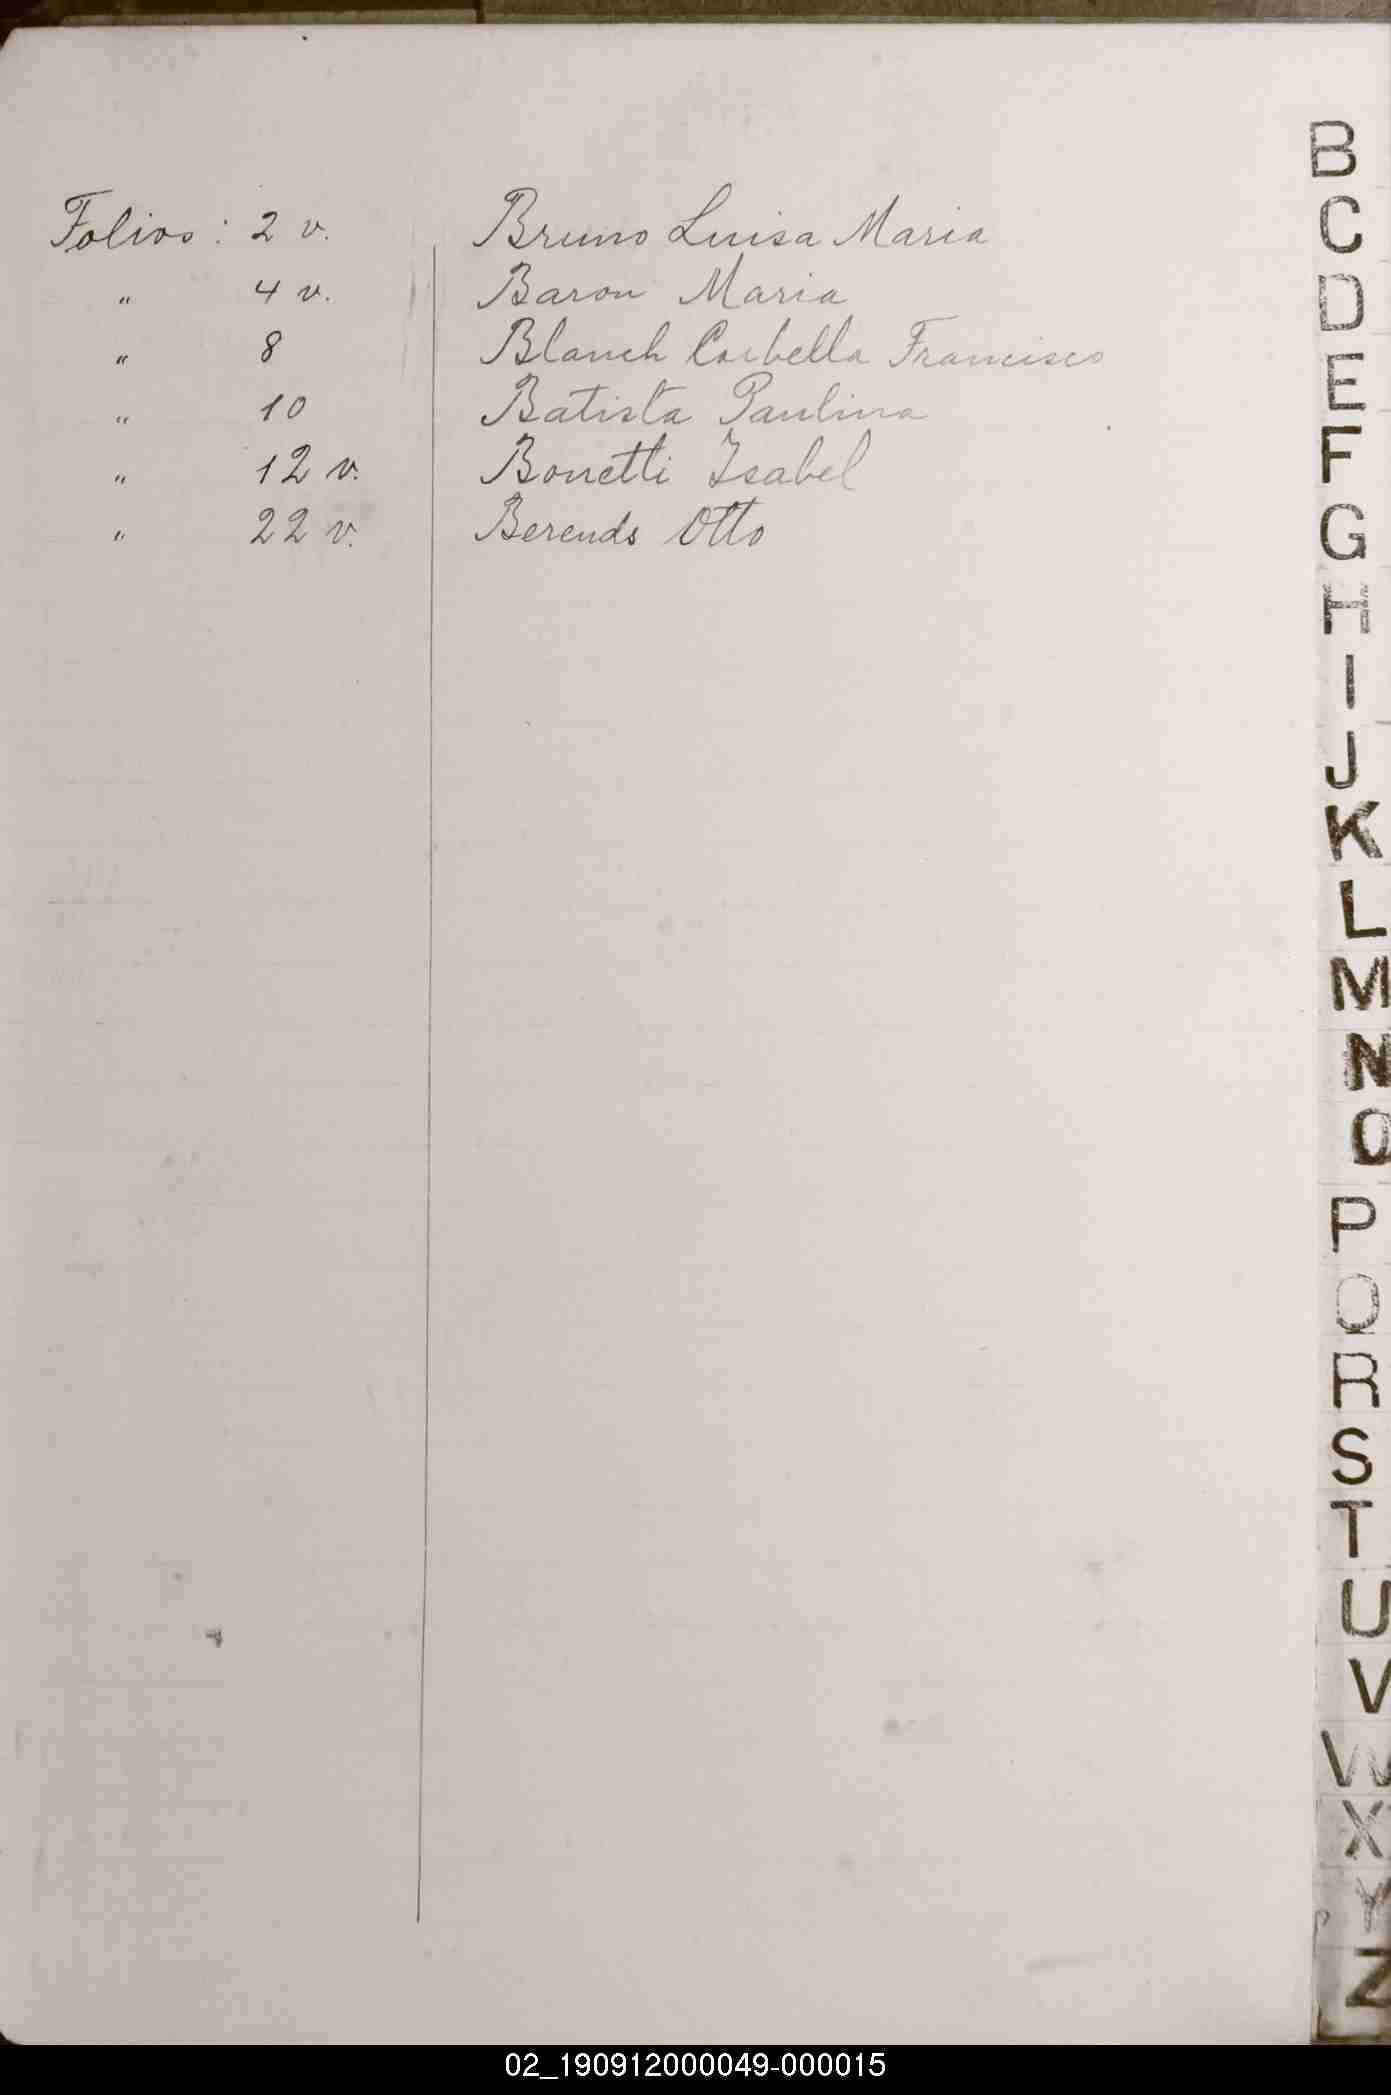 Folios : 2 v. Bruno Luisa Maria
" 4 v. Baron Maria
" 8 Blanch Corbella Francisco
" 10 Batista Paulina
" 12 v. Bonetti Isabel
" 22 v. Berends Otto
B
C
D
E
F
G
H
I
J
K
L
M
N
O
P
Q
R
S
T
U
V
W
X
Y
Z
02_190912000049-000015